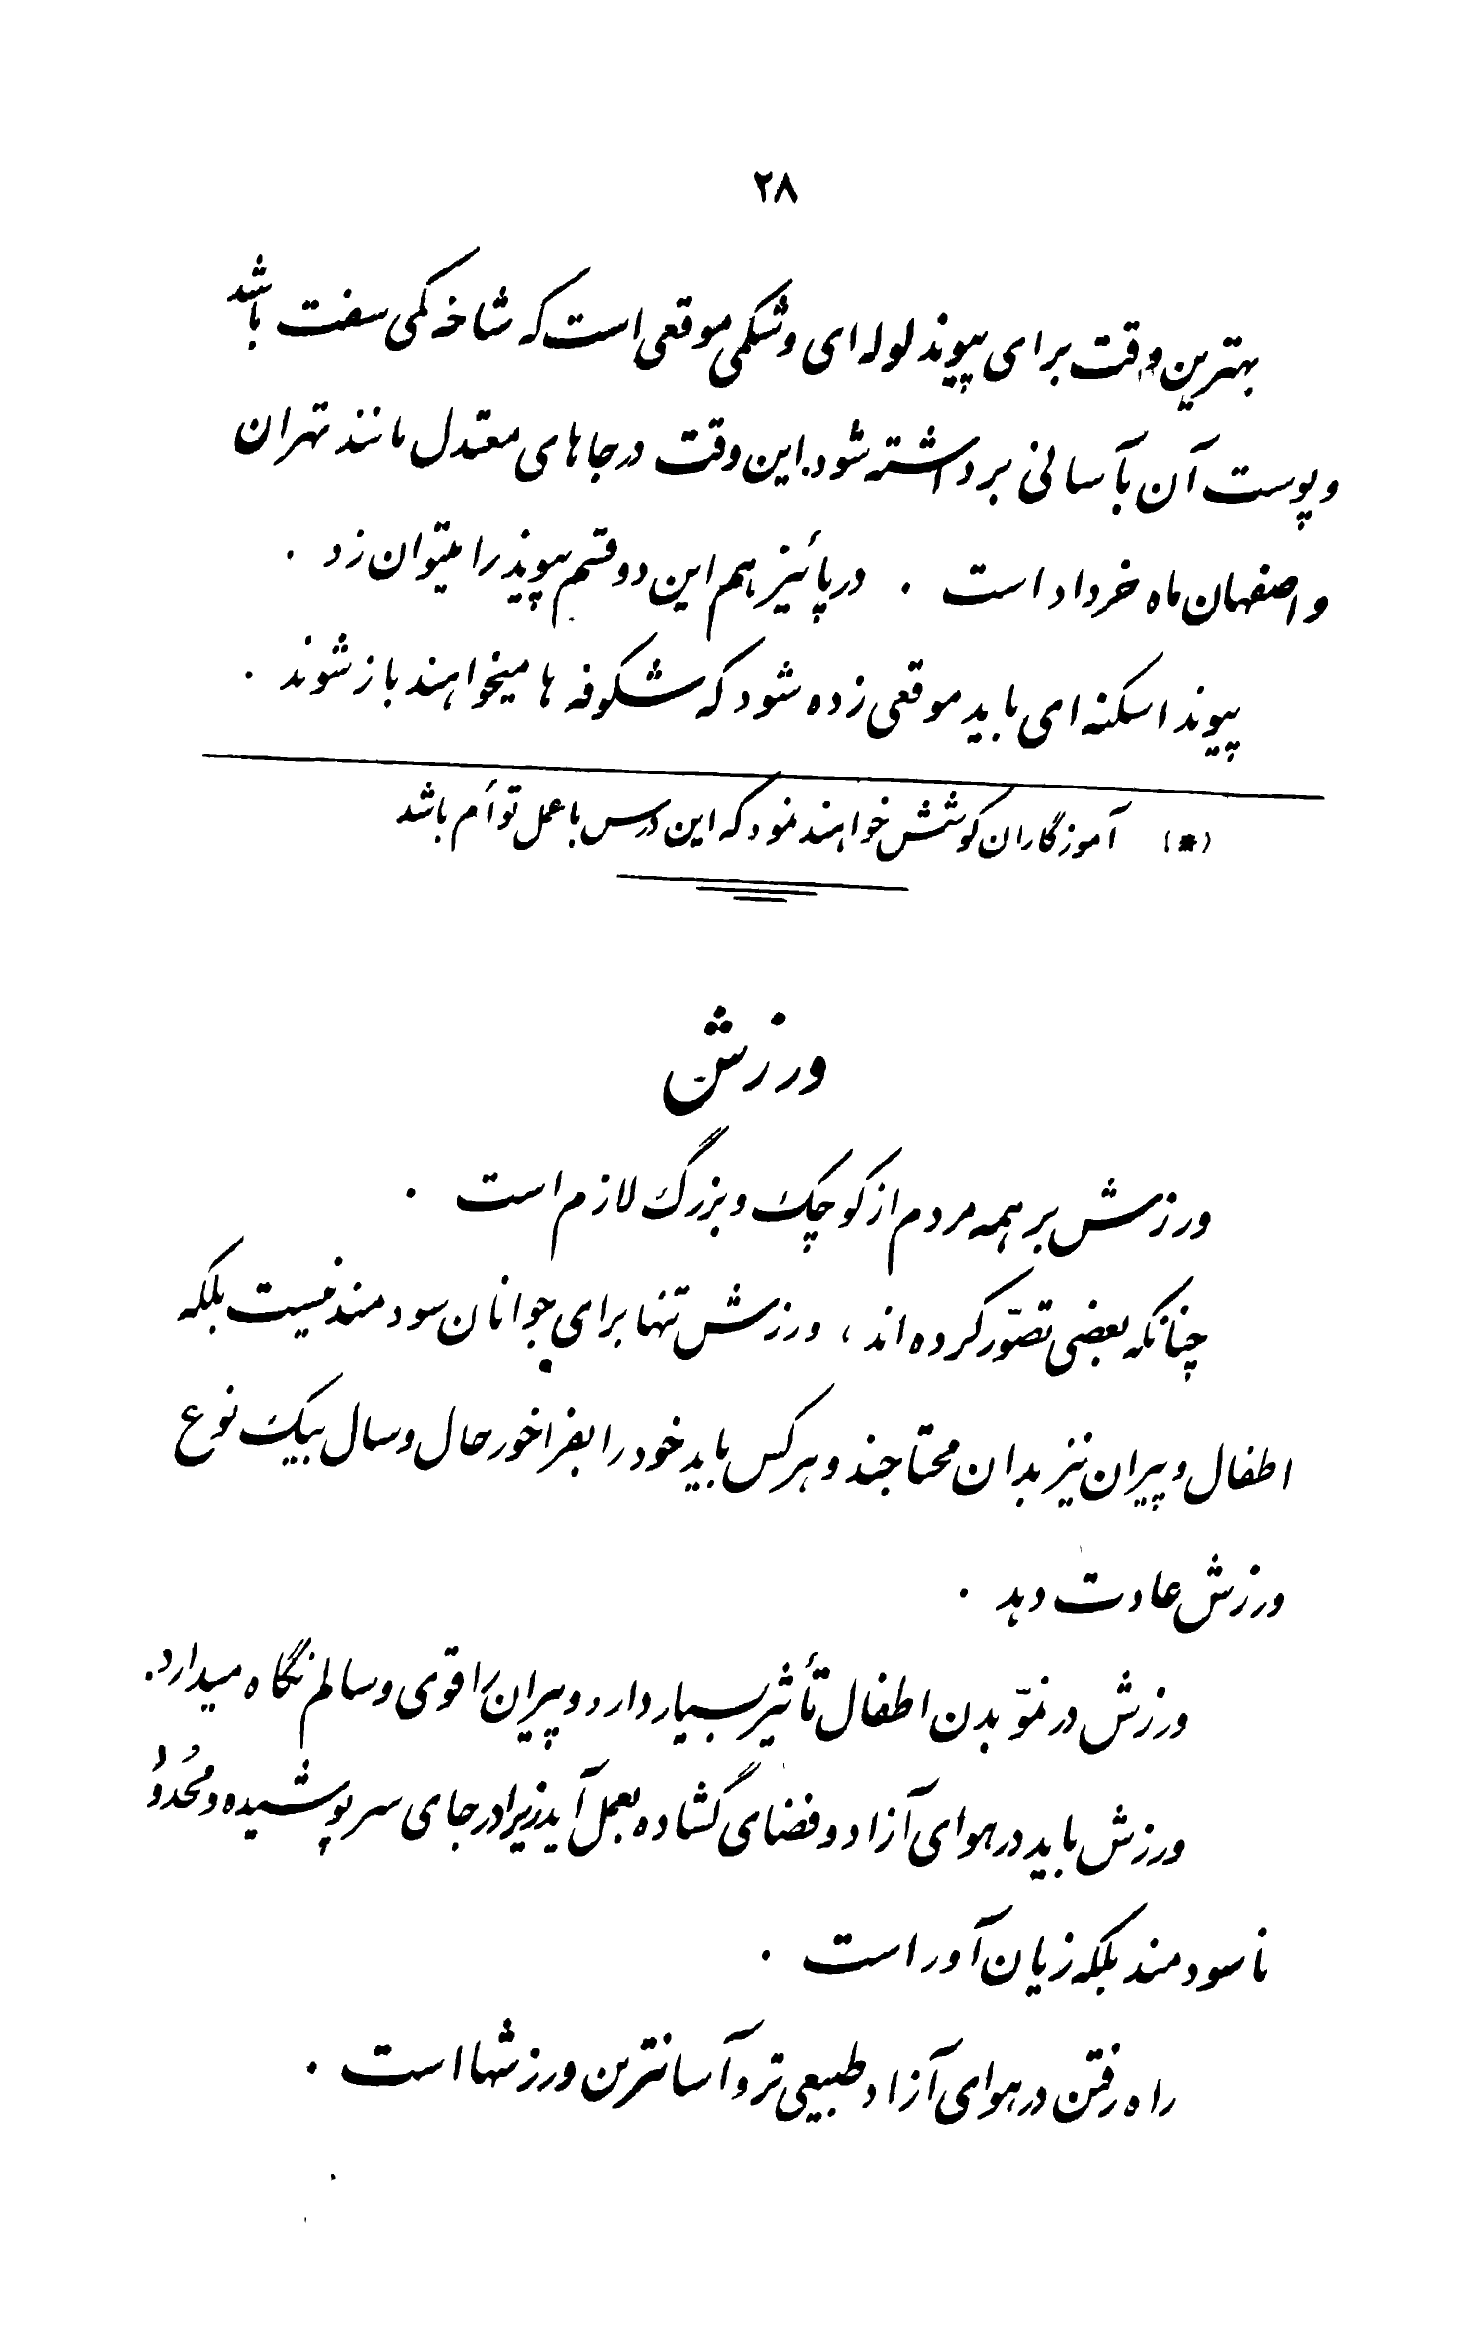 ۲۸
بهترین وقت برای پیوند لوله ای و شکمی موقعی است که شاخه کمی سفت باشد
و پوست آن بآسانی برداشته شود. این وقت در جاهای معتدل مانند تهران
و اصفهان ماه خرداد است . در پائیز هم این دو قسم پیوند را میتوان زد .
پیوند اسکنه ای باید موقعی زده شود که شکوفه ها میخواهند باز شوند .
(*) آموزگاران کوشش خواهند نمود که این درس با عمل توأم باشد
ورزش
ورزش بر همه مردم از کوچک و بزرگ لازم است .
چنانکه بعضی تصوّر کرده اند ، ورزش تنها برای جوانان سودمند نیست بلکه
اطفال و پیران نیز بدان محتاجند و هر کس باید خود را بفراخور حال و سال بیک نوع
ورزش عادت دهد .
ورزش در نموّ بدن اطفال تأثیر بسیار دارد و پیران را قوی و سالم نگاه میدارد.
ورزش باید در هوای آزاد و فضای گشاده بعمل آید زیرا در جای سرپوشیده و محدود
ناسودمند بلکه زیان آور است .
راه رفتن در هوای آزاد طبیعی تر و آسانترین ورزشها است .